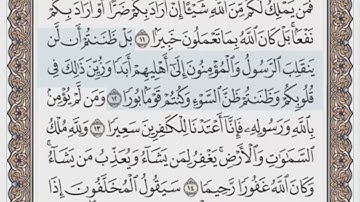 فَمَن يَمْلِكُ لَكُم مِّنَ ٱللَّهِ شَيْـًٔا إِنْ أَرَادَ بِكُمْ ضَرًّا أَوْ أَرَادَ بِكُمْ
نَفْعًۢا ۚ بَلْ كَانَ ٱللَّهُ بِمَا تَعْمَلُونَ خَبِيرًۢا ١١ بَلْ ظَنَنتُمْ أَن لَّن
يَنقَلِبَ ٱلرَّسُولُ وَٱلْمُؤْمِنُونَ إِلَىٰٓ أَهْلِيهِمْ أَبَدًا وَزُيِّنَ ذَٰلِكَ فِى
قُلُوبِكُمْ وَظَنَنتُمْ ظَنَّ ٱلسَّوْءِ وَكُنتُمْ قَوْمًۢا بُورًا ١٢ وَمَن لَّمْ يُؤْمِنۢ
بِٱللَّهِ وَرَسُولِهِۦ فَإِنَّآ أَعْتَدْنَا لِلْكَـٰفِرِينَ سَعِيرًا ١٣ وَلِلَّهِ مُلْكُ
ٱلسَّمَـٰوَٰتِ وَٱلْأَرْضِ ۚ يَغْفِرُ لِمَن يَشَآءُ وَيُعَذِّبُ مَن يَشَآءُ ۚ
وَكَانَ ٱللَّهُ غَفُورًا رَّحِيمًا ١٤ سَيَقُولُ ٱلْمُخَلَّفُونَ إِذَا